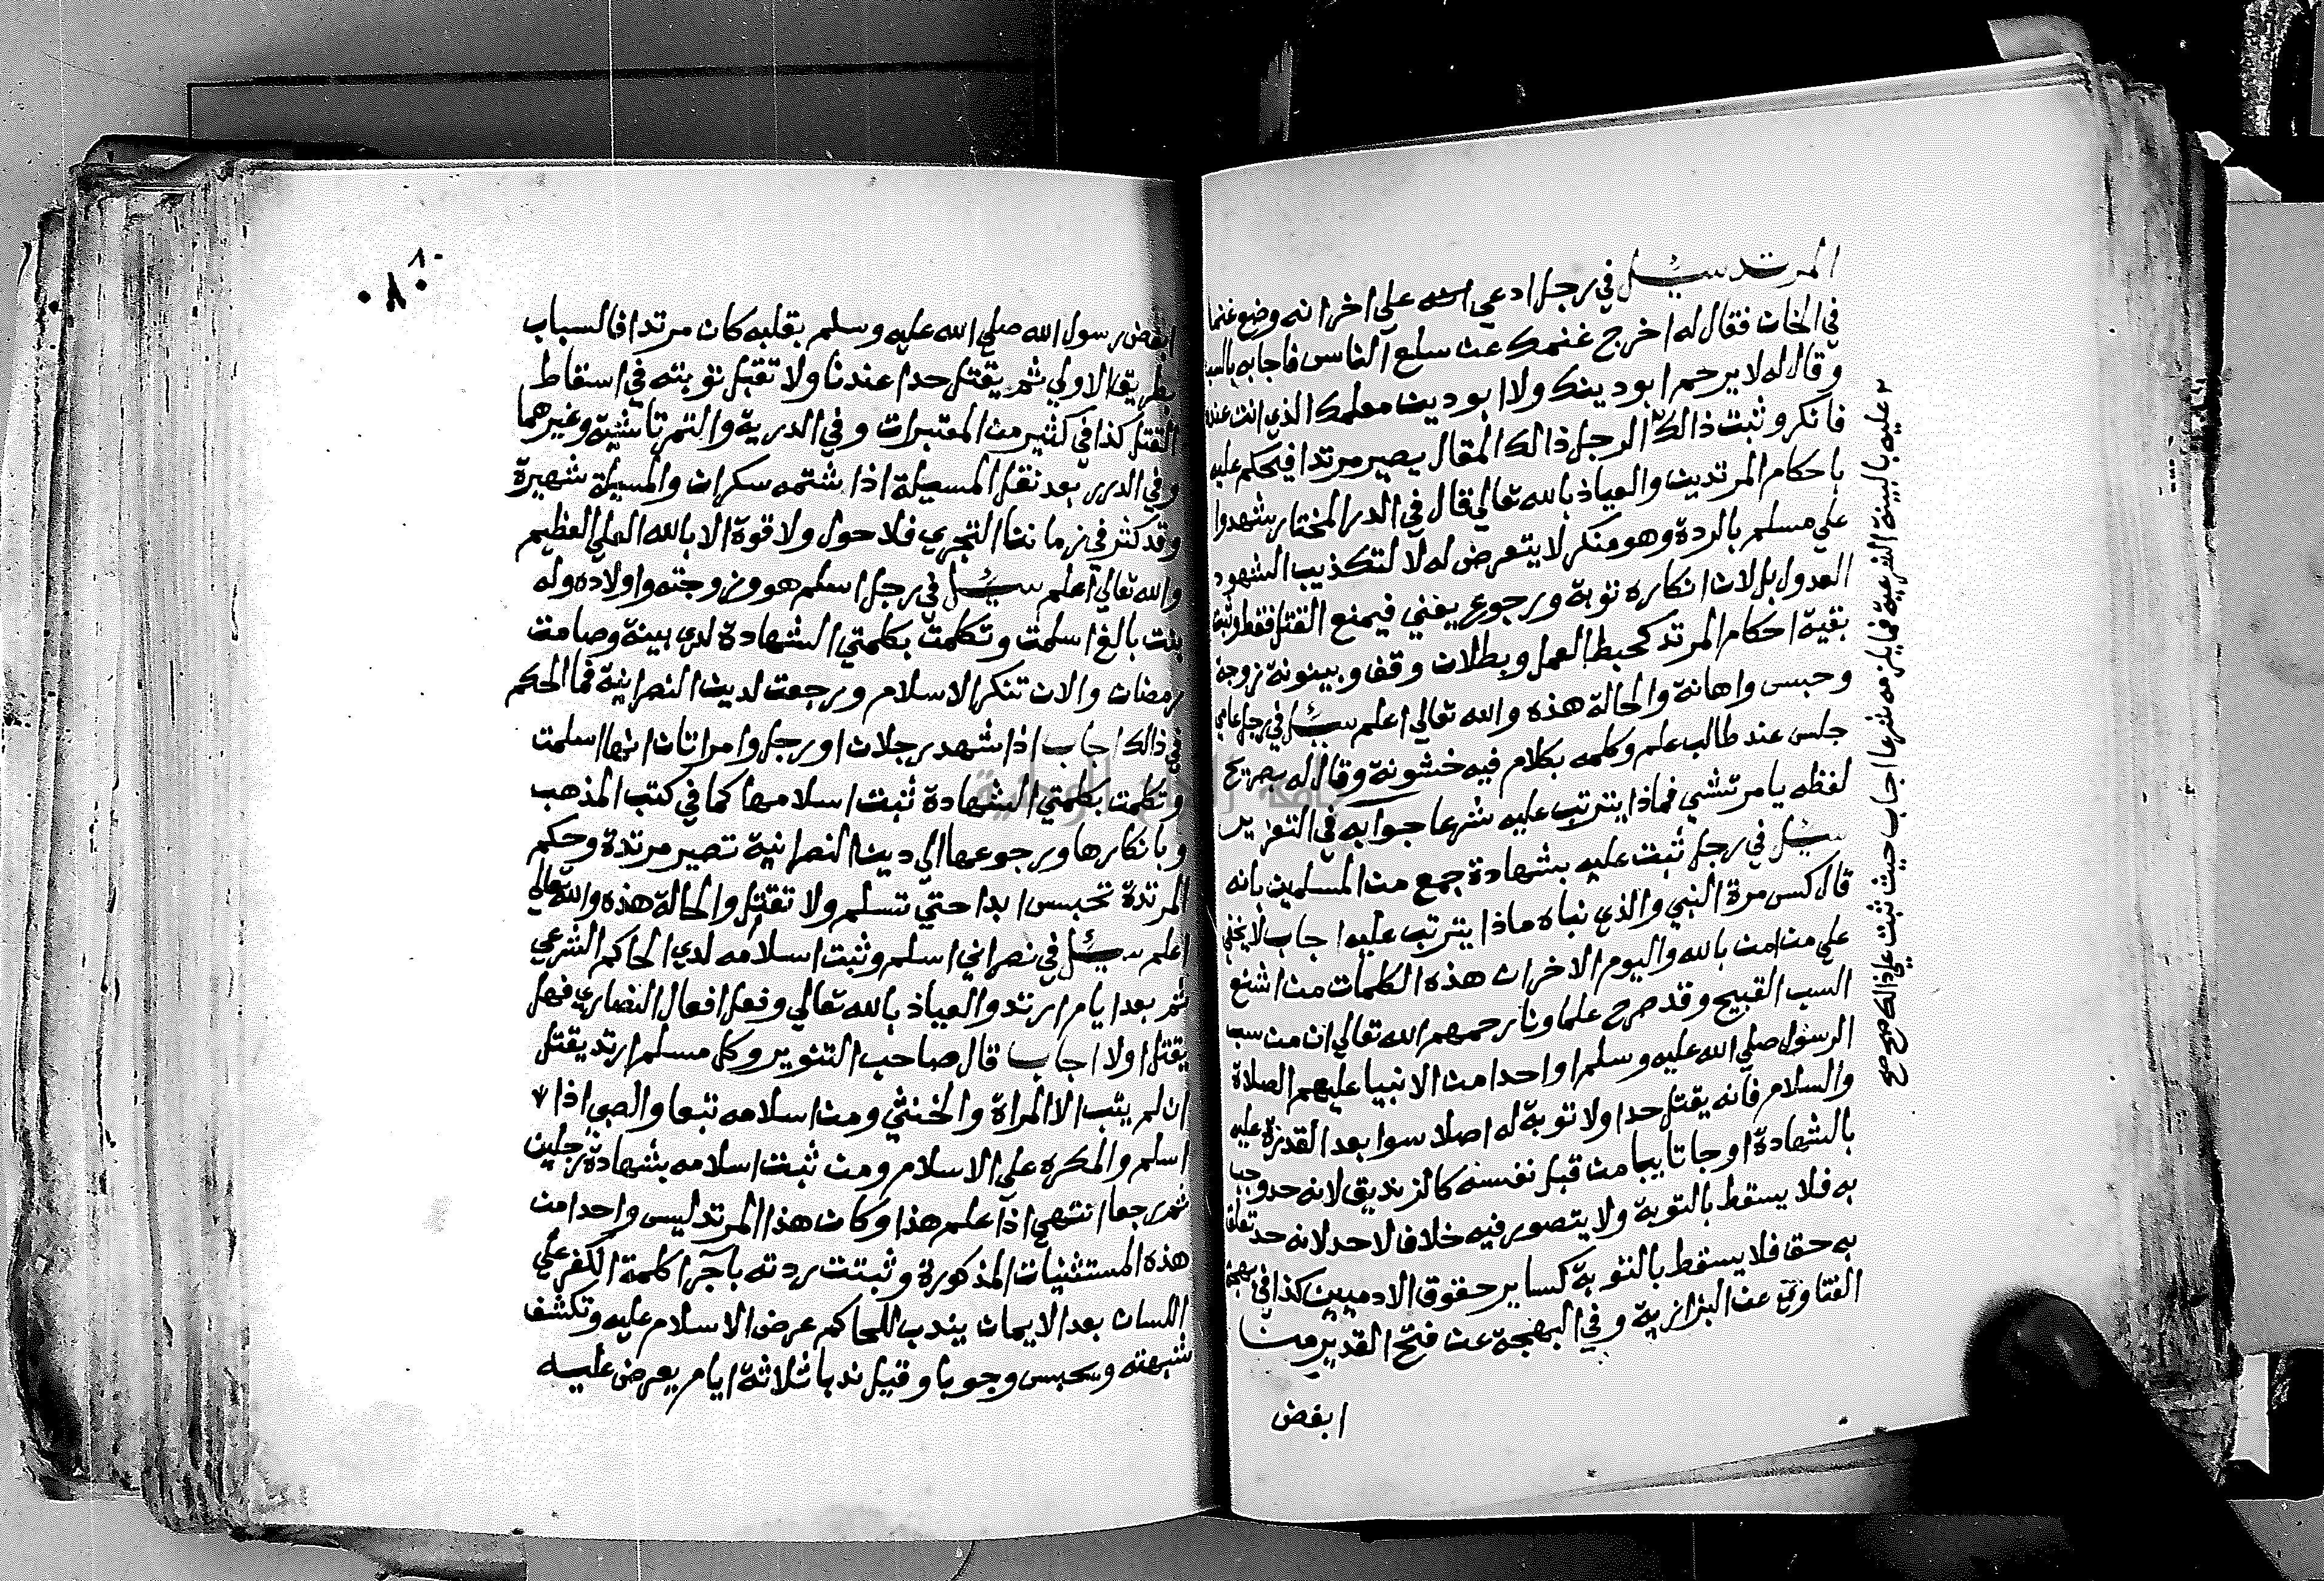 المرتد سئل في رجل ادعي انه علي اخر انه وضع غنما
في الخان فقال له اخرج غنمك عن سلع الناس فاجابه بالسب
وقال له لا يرحم ابو دينك ولا ابو دين معلمك الذي انت عنده
فانكر وثبت ذالك الرجل ذالك المقال يصير مرتدا فيحكم عليه
باحكام المرتدين والعياذ بالله تعالي قال في الدر المختار شهدوا
علي مسلم بالردة وهو منكر لا يتعرض له لا لتكذيب الشهود
العدول بل لان انكاره توبة ورجوع يعني فيمنع القتل فقط وتثبت
بقية احكام المرتد كحبط العمل وبطلان وقف وبينونة زوجة
وحبس واهانة والحالة هذه والله تعالي اعلم سئل في رجل عامي
جلس عند طالب علم وكلمه بكلام فيه خشونة وقال له بصريح
لفظه يا مرتشي فماذا يترتب عليه شرعا جوابه في التعزير
سئل في رجل ثبت عليه بشهادة جمع من المسلمين بانه
قال كس مرة النبي والذي نباه ماذا يترتب عليه اجاب لا يخفي
علي من امن بالله واليوم الاخر ان هذه الكلمات من اشنع
السب القبيح وقد صرح علماونا رحمهم الله تعالي ان من سب
الرسول صلي الله عليه وسلم او واحدا من الانبيا عليهم الصلاة
والسلام فانه يقتل حدا ولا توبة له اصلا سوا بعد القدرة عليه
بالشهادة او جا تايبا من قبل نفسه كالزنديق لانه حد وجب
به فلا يسقط بالتوبة ولا يتصور فيه خلاف لاحد لانه حد تعلق
به حق فلا يسقط بالتوبة كساير حقوق الادميين كذا في بهجة
الفتاوي عن البزازية وفي البهجة عن فتح القدير من
ابغض
عليه بالبينة الشرعية فما يلزمه شرعا اجاب حيث ثبت علي ذالك صح صح
٨٠
٨٠
ابغض رسول الله صلي الله عليه وسلم بقلبه كان مرتدا فالسباب
بطريق الاولي ثم يقتل حدا عندنا ولا تقبل توبته في اسقاط
القتل كذا في كثير من المعتبرات وفي الدرية والتمرتاشية وغيرهما
وفي الدرر بعد نقل المسيلة اذا شتمه سكران والمسيلة شهيرة
وقد كثر في زماننا التجري فلا حول ولا قوة الا بالله العلي العظيم
والله تعالي اعلم سئل في رجل اسلم هو وزوجته واولاده وله
بنت بالغ اسلمت وتكلمت بكلمتي الشهادة لدي بينة وصامت
رمضان والان تنكر الاسلام ورجعت لدين النصرانية فما الحكم
في ذالك اجاب اذا شهد رجلان او رجل وامراتان انها اسلمت
وتكلمت بكلمتي الشهادة ثبت اسلامها كما في كتب المذهب
وبانكارها ورجوعها الي دين النصرانية تصير مرتدة وحكم
المرتدة تحبس ابدا حتي تسلم ولا تقتل والحالة هذه والله تعالي
اعلم سئل في نصراني اسلم وثبت اسلامه لدي الحاكم الشرعي
ثم بعد ايام ارتد والعياذ بالله تعالي وفعل افعال النصاري فهل
يقتل اولا اجاب قال صاحب التنوير وكل مسلم ارتد يقتل
ان لم يتب الا المراة والخنثي ومن اسلامه تبعا والصبي اذا
اسلم والمكره علي الاسلام ومن ثبت اسلامه بشهادة رجلين
ثم رجعا انتهي اذا علم هذا وكان هذا المرتد ليس واحدا من
هذه المستثنيات المذكورة وثبتت ردته باجرا كلمة الكفر علي
اللسان بعد الايمان يندب للحاكم عرض الاسلام عليه وتكشف
شبهته ويحبس وجوبا وقيل ندبا ثلاثة ايام يعرض عليه